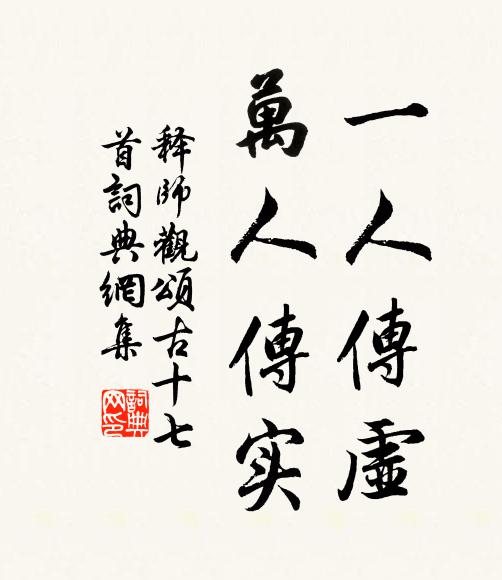 一人傳虛
萬人傳实
释師觀頌古十七
首詞典網集
詞典
网印